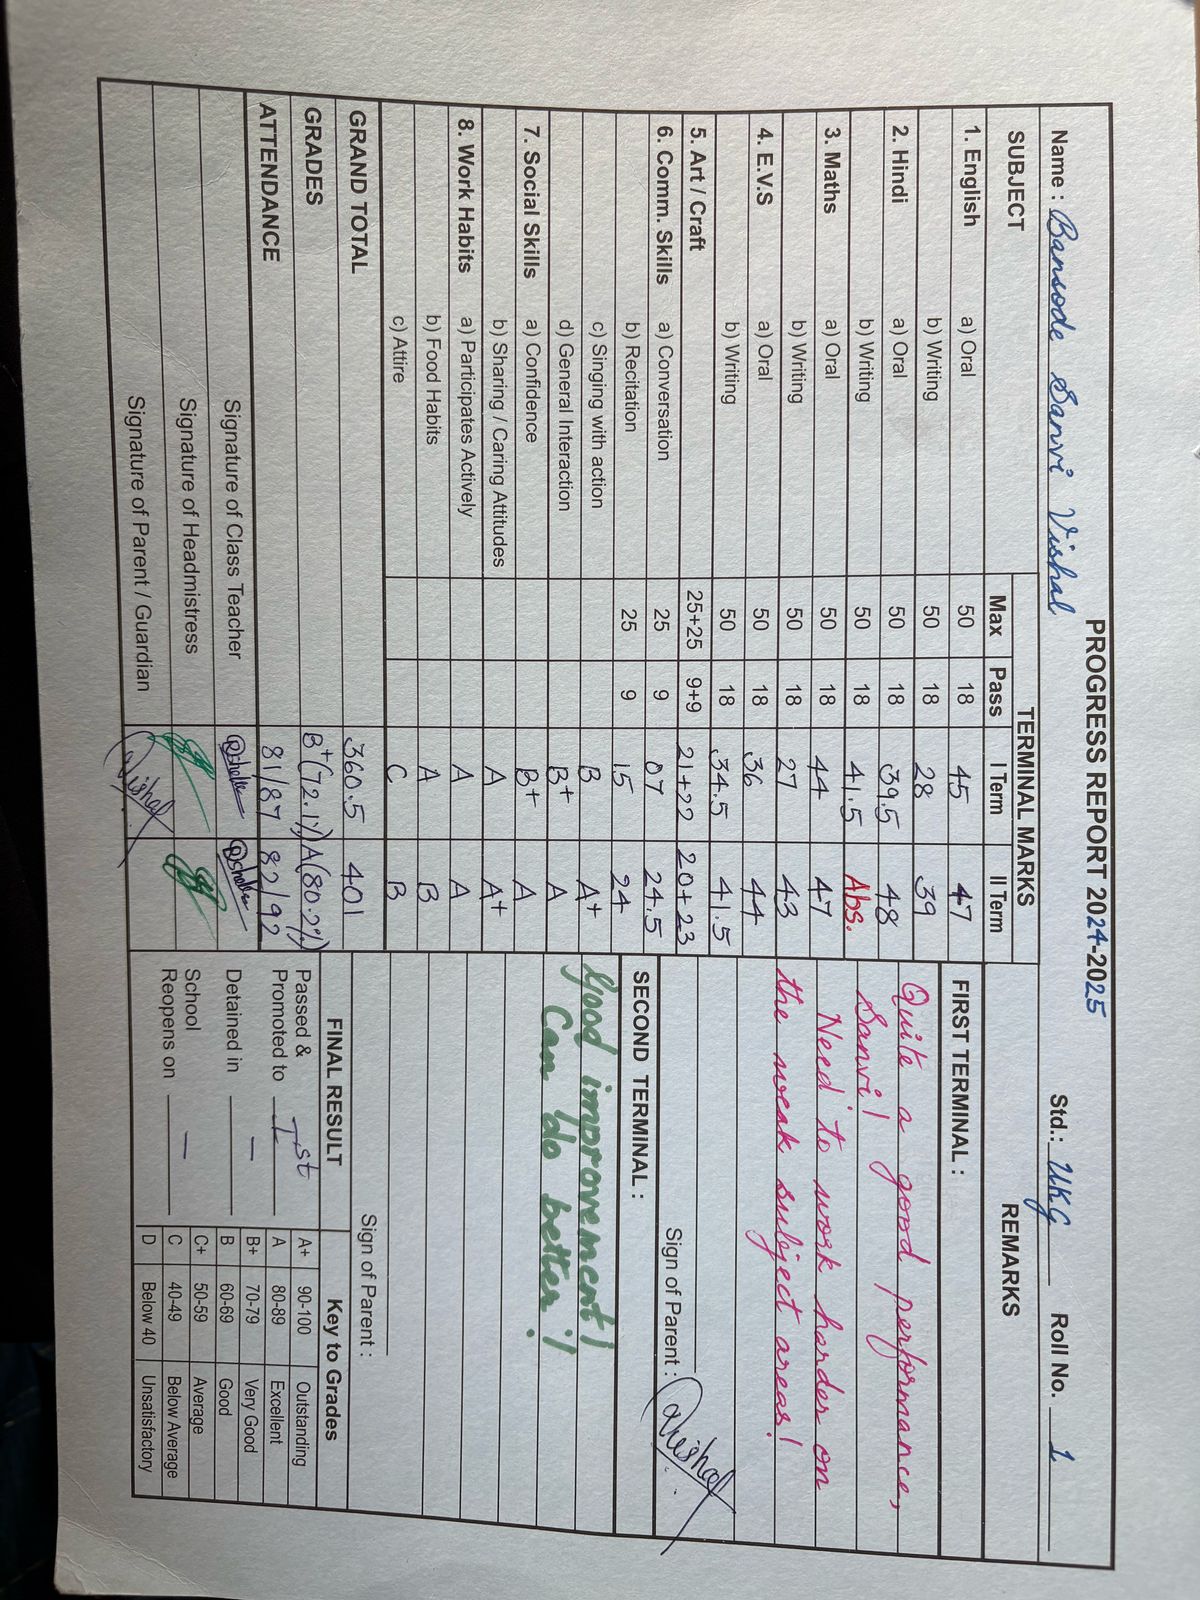 PROGRESS REPORT 2024-2025
Name : Bansode Sanvi Vishal Std.: UKG Roll No. 1
SUBJECT TERMINAL MARKS REMARKS
Max Pass I Term II Term
1. English a) Oral 50 18 45 47
b) Writing 50 18 28 39
2. Hindi a) Oral 50 18 39.5 48
b) Writing 50 18 41.5 Abs.
3. Maths a) Oral 50 18 44 47
b) Writing 50 18 27 43
4. E.V.S a) Oral 50 18 36 44
b) Writing 50 18 34.5 41.5
5. Art / Craft 25+25 9+9 21+22 20+23
6. Comm. Skills a) Conversation 25 9 07 24.5
b) Recitation 25 9 15 24
c) Singing with action B A+
d) General Interaction B+ A
7. Social Skills a) Confidence B+ A
b) Sharing / Caring Attitudes A A+
8. Work Habits a) Participates Actively A A
b) Food Habits A B
c) Attire C B
GRAND TOTAL 360.5 401
GRADES B+(72.1%) A(80.2%)
ATTENDANCE 81/87 82/92
Signature of Class Teacher
Signature of Headmistress
Signature of Parent / Guardian Vishal
FIRST TERMINAL :
Quite a good performance,
Sanvi!
Need to work harder on
the weak subject areas!
Sign of Parent : Vishal
SECOND TERMINAL :
Good improvement!
Can do better!
Sign of Parent :
FINAL RESULT
Passed &
Promoted to Ist
Detained in —
School
Reopens on —
Key to Grades
A+ 90-100 Outstanding
A 80-89 Excellent
B+ 70-79 Very Good
B 60-69 Good
C+ 50-59 Average
C 40-49 Below Average
D Below 40 Unsatisfactory